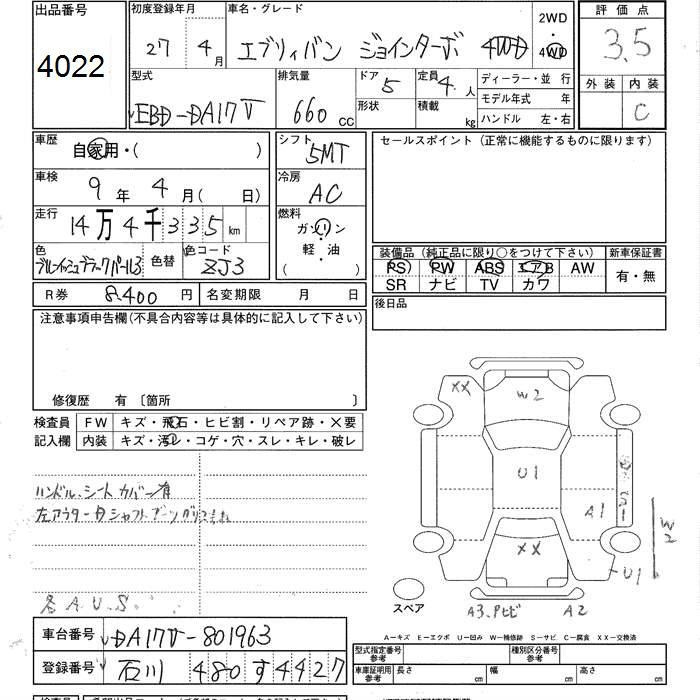 出品番号 4022
初度登録年月 27年 4月
車名・グレード エブリィバン ジョインターボ 4WD
2WD・4WD
評価点 3.5
外装 内装 C
型式 EBD-DA17V
排気量 660 cc
ドア 5
形状
定員 4 人
積載 kg
ディーラー・並行
モデル年式 年
ハンドル 左・右
車歴 自家用・( )
シフト 5MT
セールスポイント (正常に機能するものに限ります)
車検 9年 4月( 日)
冷房 AC
走行 14万4千335 km
燃料 ガソリン・軽油 ( )
色 ブルーイッシュブラックパール3
色替
色コード ZJ3
装備品 (純正品に限り○をつけて下さい)
PS PW ABS エアB AW
SR ナビ TV カワ
新車保証書 有・無
R券 8400 円
名変期限 月 日
後日品
注意事項申告欄(不具合内容等は具体的に記入して下さい)
修復歴 有 〔箇所 〕
検査員記入欄
FW キズ・飛石・ヒビ割・リペア跡・×要
内装 キズ・汚れ・コゲ・穴・スレ・キレ・破レ
ハンドル、シートカバー有
左アウター
各A.U.S.
XX
W2
U1
A1
W2
XX
U1
A3.Pヒビ
A2
スペア
A-キズ E-エクボ U-凹み W-補修跡 S-サビ C-腐食 XX-交換済
車台番号 DA17V-801963
登録番号 石川 480 す 4427
型式指定番号 参考
種別区分番号 参考
車庫証明用 参考
長さ cm
幅 cm
高さ cm